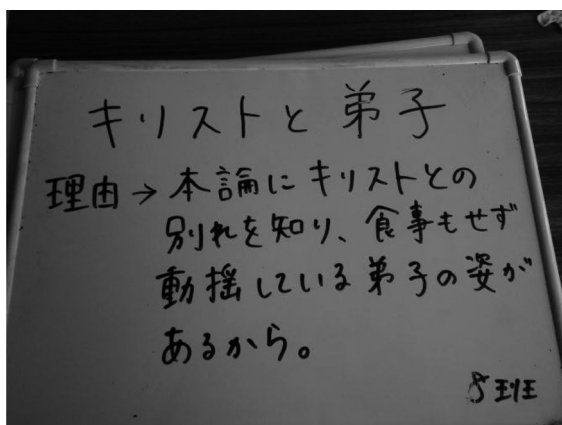 キリストと弟子
理由→本論にキリストとの
別れを知り、食事もせず
動揺している弟子の姿が
あるから。
8班